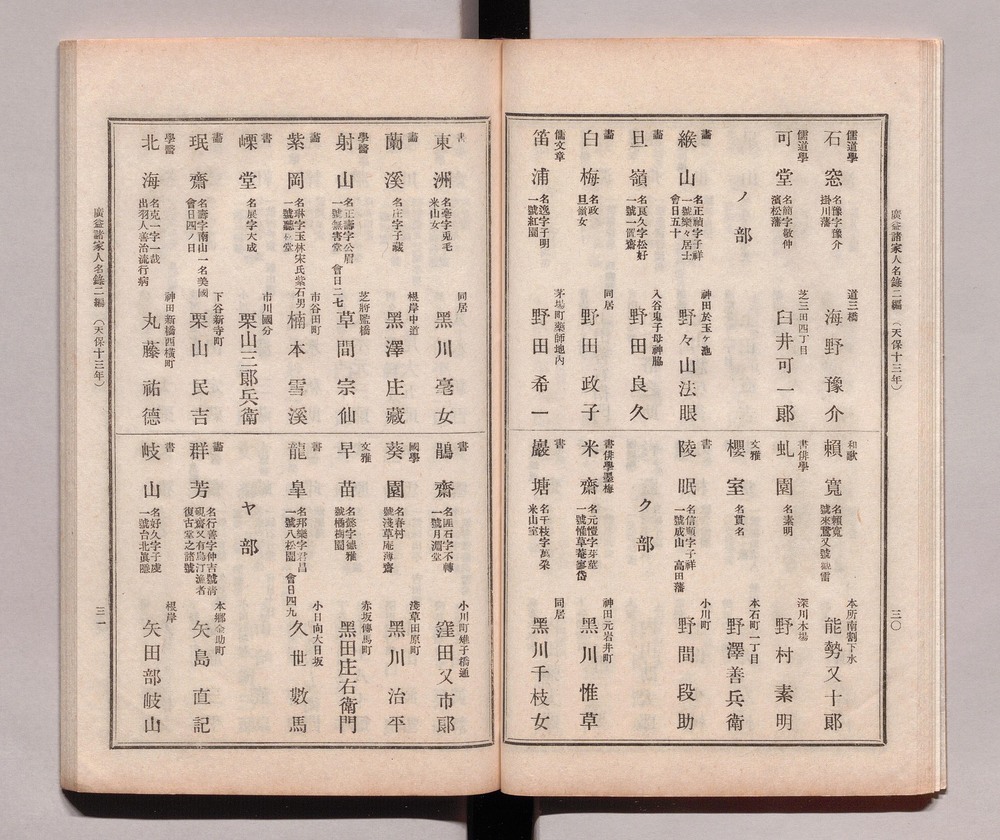 廣益諸家人名錄二編 （天保十三年）
三〇
儒道學
石窓 名豫字豫介
掛川藩
道三橋
海野豫介
儒道學
可堂 名簡字敬仲
濱松藩
芝三田四丁目
臼井可一郎
ノ部
畵
緱山 名正禎字子祥
一號樂々居士
會日五十
神田於玉ヶ池
野々山法眼
畵
旦嶺 名良久字松好
一號一置齋
入谷鬼子母神脇
野田良久
畵
白梅 名政
旦嶺女
同居
野田政子
儒文章
笛浦 名逸字子明
一號紅園
茅場町藥師地內
野田希一
和歌
賴寬 名賴寬
本所南割下水
能勢又十郎
書俳學
虬園 名素明
深川木場
野村素明
文雅
櫻室 名貫名
本石町一丁目
野澤善兵衛
書
陵眠 名信順字子祥
一號成山 高田藩
小川町
野間段助
ク部
書俳學墨梅
米齋
神田元岩井町
黑川惟草
書
巖塘 名千枝字萬朶
米山室
同居
黑川千枝女
書
東洲 名亳字兎毛
米山女
同居
黑川亳女
畵
蘭溪 名庄字子藏
根岸中道
黑澤庄藏
學醫
射山 名正壽字公眉
一號無害堂 會日二七
芝將監橋
草間宗仙
畵
紫岡 名琳字玉林宋氏紫石男
市谷田町
楠本雪溪
書
嶫堂 名展字大成
市川國分
栗山三郎兵衛
畵
珉齋 名壽字南山一名美國
會日四ノ日
下谷新寺町
栗山民吉
學醫
北海 名克一字一哉
出羽人善治流行病
神田新橋西橫町
丸藤祐德
書
鵑齋 名匪石字不轉
一號月湄堂
小川町雉子橋通
窪田又市郎
國學
葵園 名春村
號淺草庵薄齋
淺草田原町
黑川治平
文雅
早苗 名懿字德雅
號橘樹園
赤坂傳馬町
黑田庄右衛門
書
龍皐 名邦欒字君昌
一號八松園 會日四九
小日向大日坂
久世數馬
ヤ部
畵
群芳 名行善字仲吉號淸
硯齋又有烏汀漁者
復古堂之諸號
本鄉金助町
矢島直記
書
岐山 名好久字子虔
一號台北眞隱
根岸
矢田部岐山
廣益諸家人名錄二編 （天保十三年）
三一